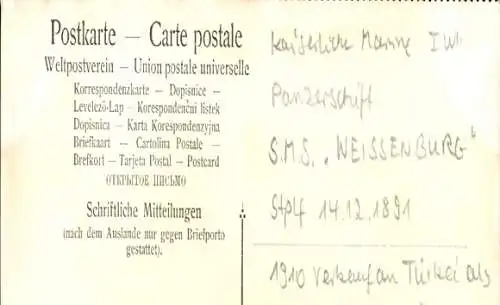 Postkarte — Carte postale
Weltpostverein — Union postale universelle
Korrespondenzkarte — Dopisnice —
Levelező-Lap — Korespondenční lístek
Dopisnica — Karta Korespondenzyjna
Briefkaart — Cartolina Postale —
Brefkort — Tarjeta Postal — Postcard
ОТКРЫТОЕ ПИСЬМО
Schriftliche Mitteilungen
(nach dem Auslande nur gegen Briefporto
gestattet).
Kaiserliche Marine
Panzerschiff
S.M.S. „WEISSENBURG“
Stplf 14.12.1891
1910 Verkauf an Türkei als